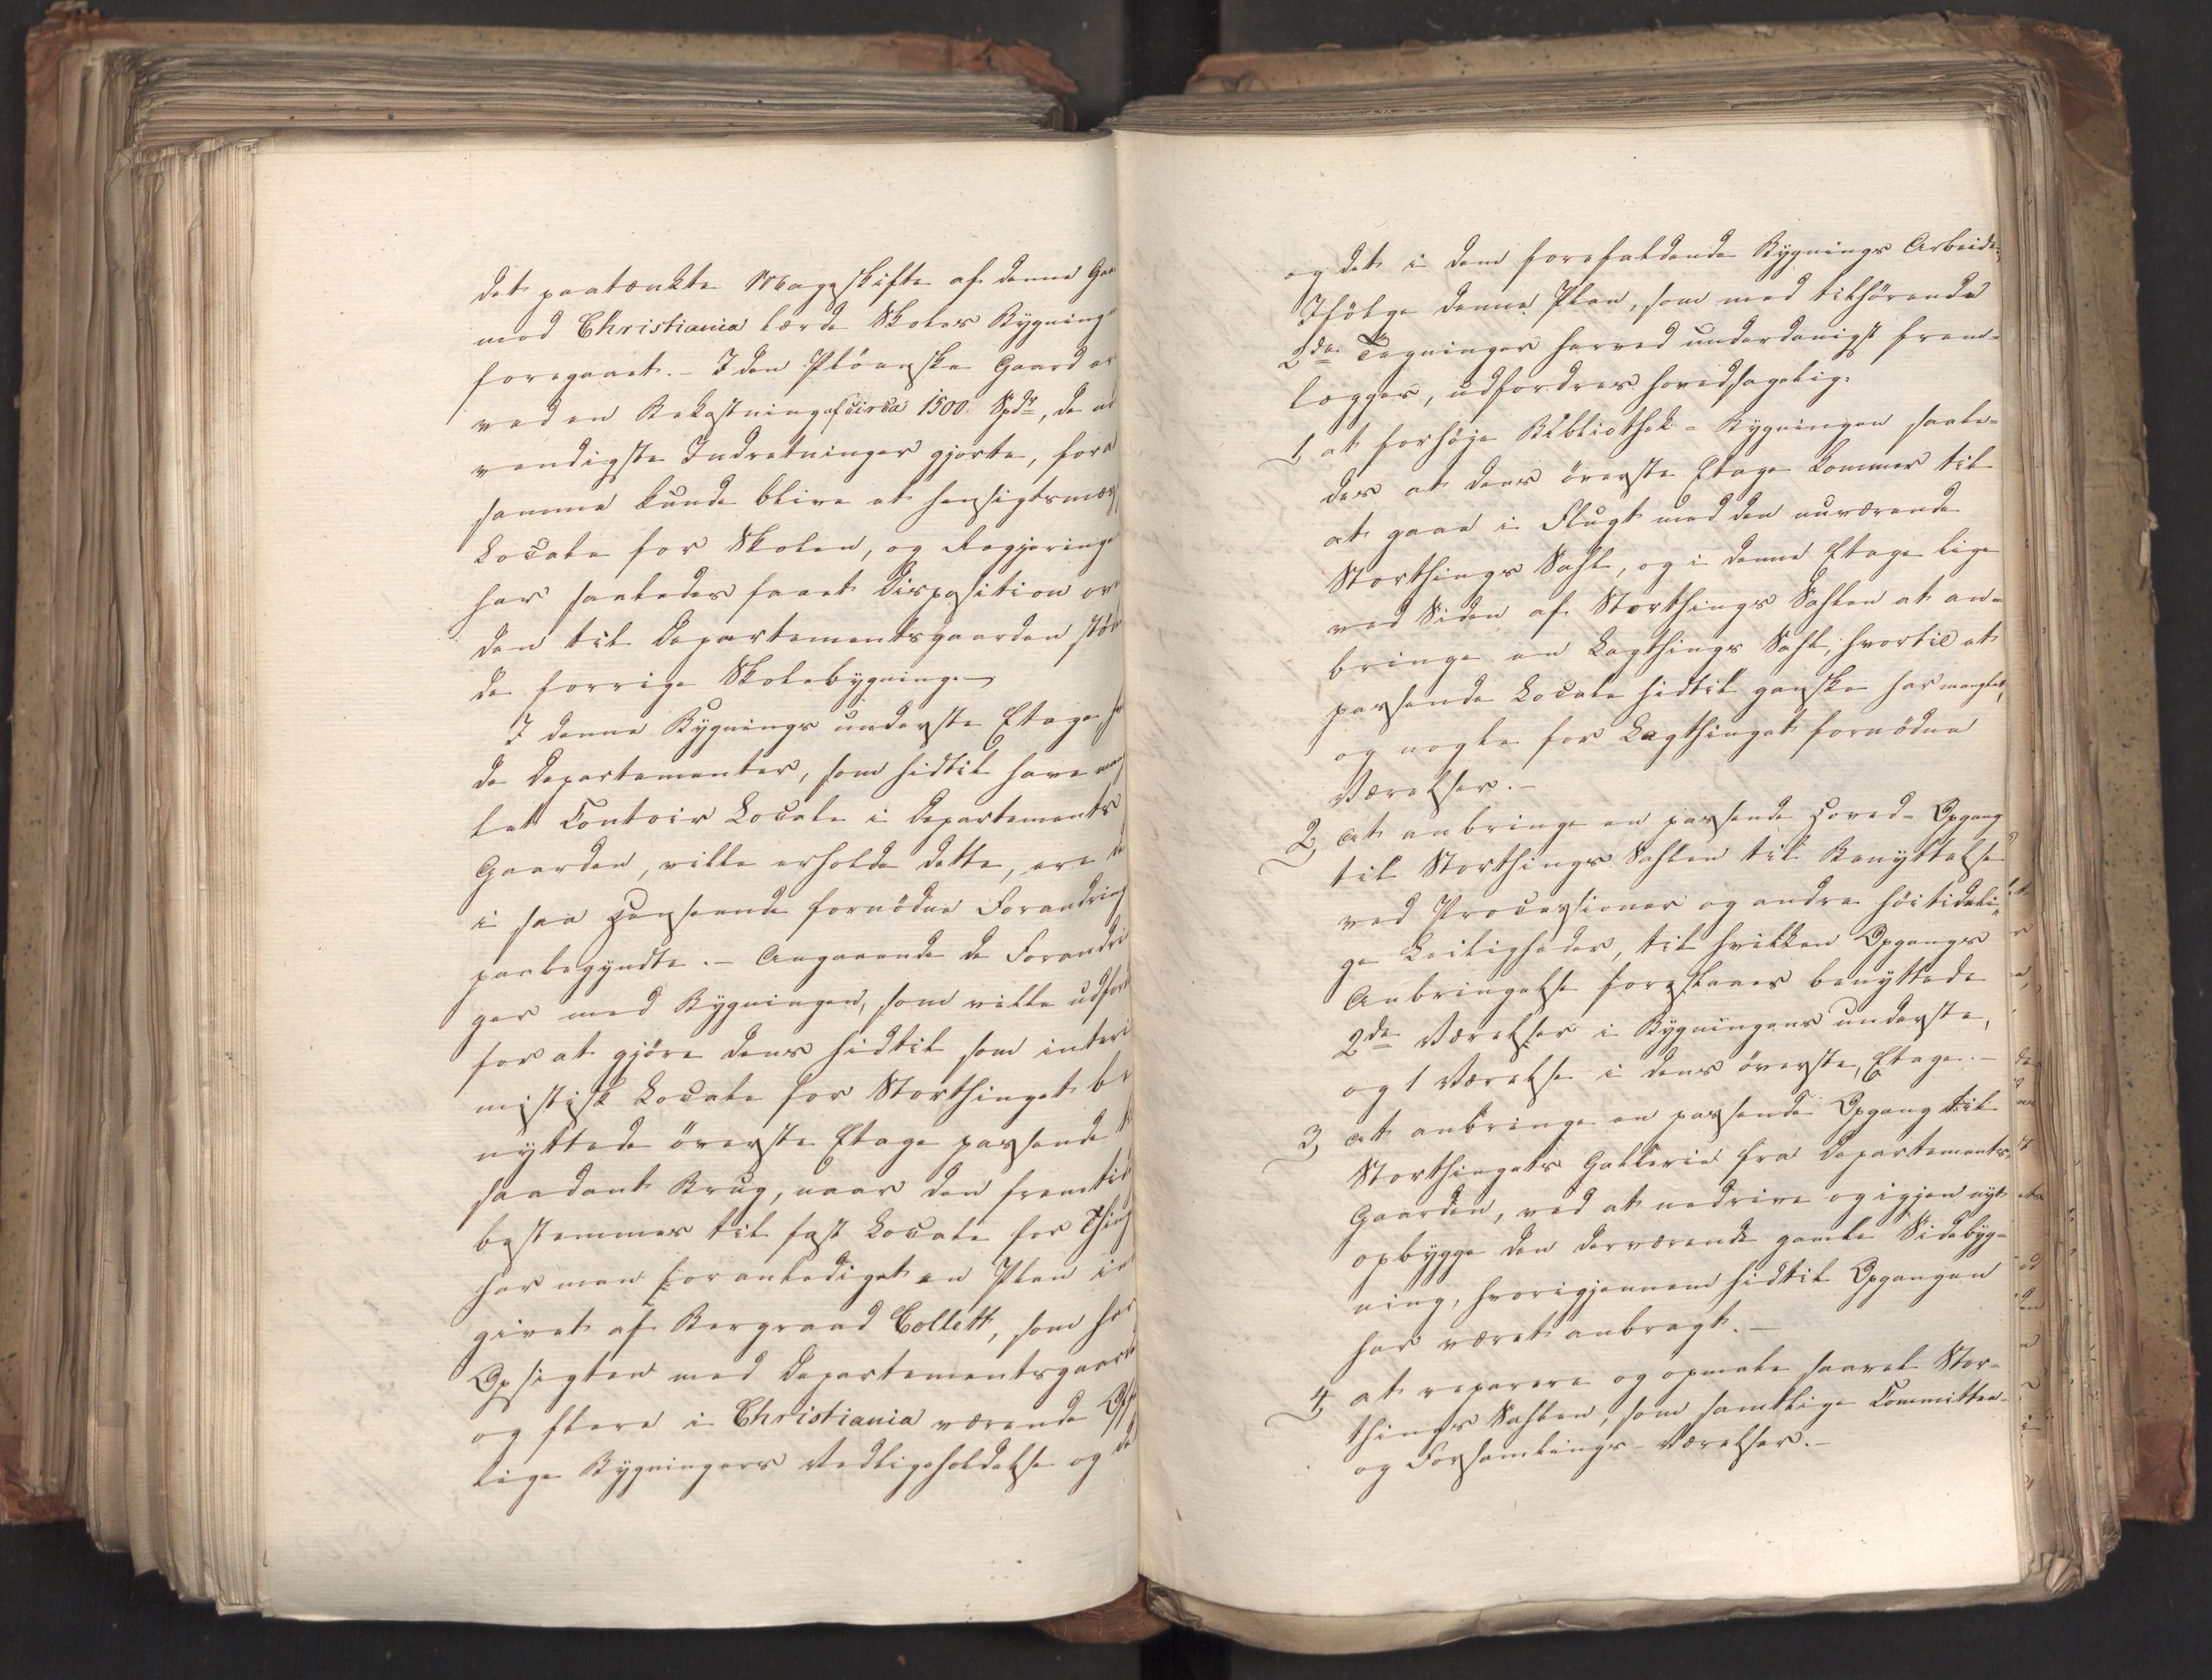 det paatænkte Mageskifte af denne Gaa
med Christiania lærde Skoles Bygning
foregaaet. – I den Plöenske Gaard er
ved en Bekostning af circa 1500 Spdr, de nö
vendigste Indretninger gjorte, for a
samme kunde blive et hensigtsmæs
Locale for Skolen, og Regjeringe
har saaledes faaet Disposition ove
den til Departementsgaarden stöde
de forrige Skolebygning.
I denne Bygnings underste Etage, hv
de Departementer, som hidtil have man
let Contoir Locale i Departements
Gaarden, ville erholde dette, ere de
i saa Henseende fornödne Forandring
paabegyndte. – Angaaende de Forandri
ger med Bygningen, som ville udfor
for at gjöre dens hidtil som interi
mistisk Locale for Storthinget be
nyttede överste Etage passende t
saadant Brug, naar den fremtid
bestemmes til fast Locale for Thing
har man foranlediget en Plan in
givet af Bergraad Collett, som har
Opsigten med Departementsgaard
og flere i Christiania værende Off
lige Bygningers Vedligeholdelse og de
og det i dem forefaldende Bygnings Arbeide.
Ifölge denne Plan, som med tilhörende
2de Tegninger herved underdanigst frem-
lægges, udfordres hovedsagelig:
1, at forhöje Bibliothek-Bygningen saale-
des at dens överste Etage kommer til
at gaae i Flugt med den nuværende
Storthings Sahl, og i denne Etage lige
ved Siden af Storthings Sahlen at an-
bringe en Lagthings Sahl, hvortil et
passende Locale hidtil ganske har manglet,
og nogle for Lagthinget fornödne
Værelser. –
2, at anbringe en passende Hoved-Opgang
til Storthings Sahlen til Benyttelse
ved Processioner og andre höitideli-
ge Leiligheder, til hvilken Opgangs
Anbringelse foreslaaes benyttede
2de Værelser i Bygningens underste,
og 1 Værelse i dens överste, Etage. –
3, at anbringe en passende Opgang til
Storthingets Gallerie fra Departements
Gaarden, ved at nedrive og igjen nyt
opbygge den derværende gamle Sidebyg-
ning, hvorigjennem hidtil Opgangen
har været anbragt. –
4, at reparere og opmale saavel Stor-
things Sahlen, som samtlige Committee-
og Forsamlings-Værelser. –